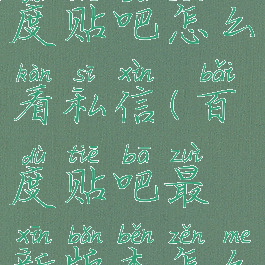 度贴吧怎么
kàn sī xìn bǎi
看私信(百
dù tiē bā zuì
度贴吧最
xīn bǎn běn zěn me
新版本怎么